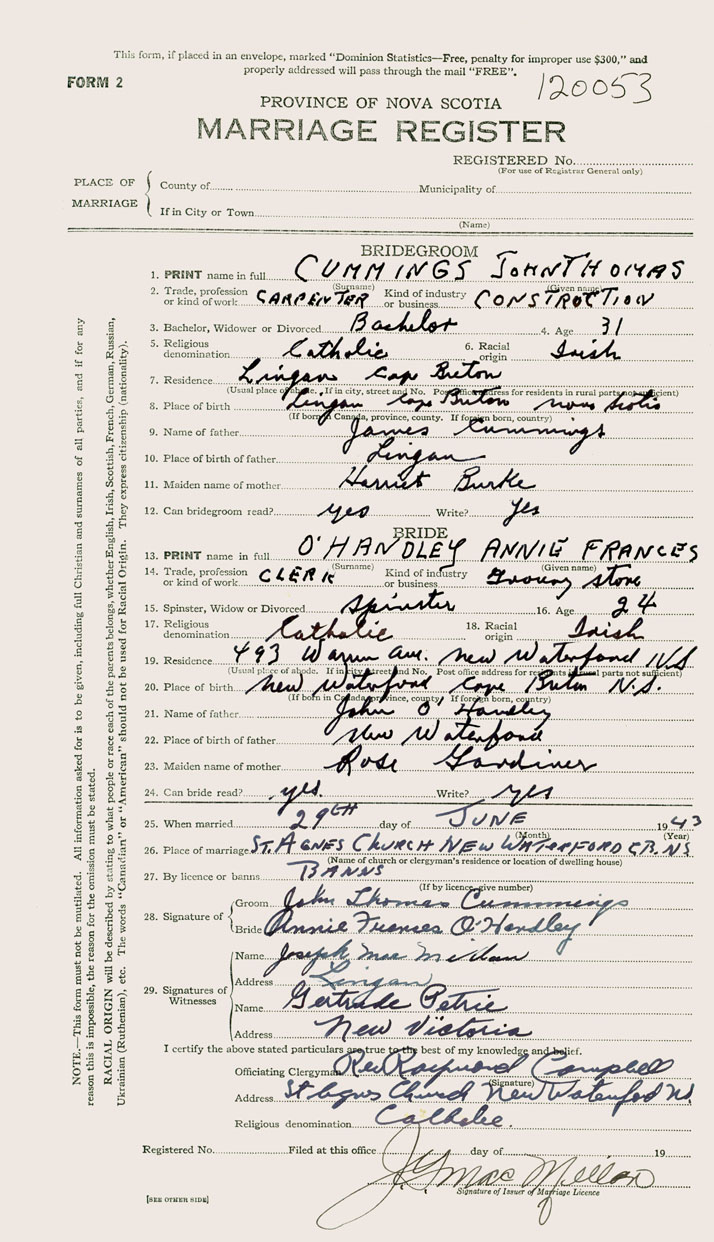 This form, if placed in an envelope, marked "Dominion Statistics—Free, penalty for improper use $300," and
properly addressed will pass through the mail "FREE".
FORM 2
120053
PROVINCE OF NOVA SCOTIA
MARRIAGE REGISTER
REGISTERED No.
(For use of Registrar General only)
PLACE OF MARRIAGE
County of Municipality of
If in City or Town
(Name)
BRIDEGROOM
1. PRINT name in full CUMMINGS JOHN THOMAS
(Surname) (Given name)
2. Trade, profession or kind of work CARPENTER Kind of industry or business CONSTRUCTION
3. Bachelor, Widower or Divorced Bachelor 4. Age 31
5. Religious denomination Catholic 6. Racial origin Irish
7. Residence Lingan Cap Breton
(Usual place of abode. If in city, street and No. Post office address for residents in rural parts not sufficient)
8. Place of birth Lingan Cap Breton nova scotia
(If born in Canada, province, county. If foreign born, country)
9. Name of father James Cummings
10. Place of birth of father Lingan
11. Maiden name of mother Harriet Burke
12. Can bridegroom read? yes Write? Yes
BRIDE
13. PRINT name in full O'HANDLEY ANNIE FRANCES
(Surname) (Given name)
14. Trade, profession or kind of work CLERK Kind of industry or business Grocery store
15. Spinster, Widow or Divorced Spinster 16. Age 24
17. Religious denomination Catholic 18. Racial origin Irish
19. Residence 493 Warren Ave. New Waterford N.S
(Usual place of abode. If in city, street and No. Post office address for residents in rural parts not sufficient)
20. Place of birth New Waterford Cape Breton N.S.
(If born in Canada, province, county. If foreign born, country)
21. Name of father John O'Handley
22. Place of birth of father New Waterford
23. Maiden name of mother Rose Gardiner
24. Can bride read? yes. Write? yes
25. When married 29TH day of JUNE 1943
(Month) (Year)
26. Place of marriage ST. AGNES CHURCH NEW WATERFORD C.B. NS
(Name of church or clergyman's residence or location of dwelling house)
27. By licence or banns BANNS
(If by licence, give number)
28. Signature of
Groom John Thomas Cummings
Bride Annie Frances O'Handley
29. Signatures of Witnesses
Name Joseph Mac Millan
Address Lingan
Name Gertrude Petrie
Address New Victoria
I certify the above stated particulars are true to the best of my knowledge and belief.
Officiating Clergyman Rev Raymond Campbell
(Signature)
Address St Agnes Church New Waterford NS
Religious denomination Catholic.
Registered No. Filed at this office day of 19
J G MacMillan
Signature of Issuer of Marriage Licence
[SEE OTHER SIDE]
NOTE.—This form must not be mutilated. All information asked for is to be given, including full Christian and surnames of all parties, and if for any
reason this is impossible, the reason for the omission must be stated.
RACIAL ORIGIN will be described by stating to what people or race each of the parents belongs, whether English, Irish, Scottish, French, German, Russian,
Ukrainian (Ruthenian), etc. The words "Canadian" or "American" should not be used for Racial Origin. They express citizenship (nationality).